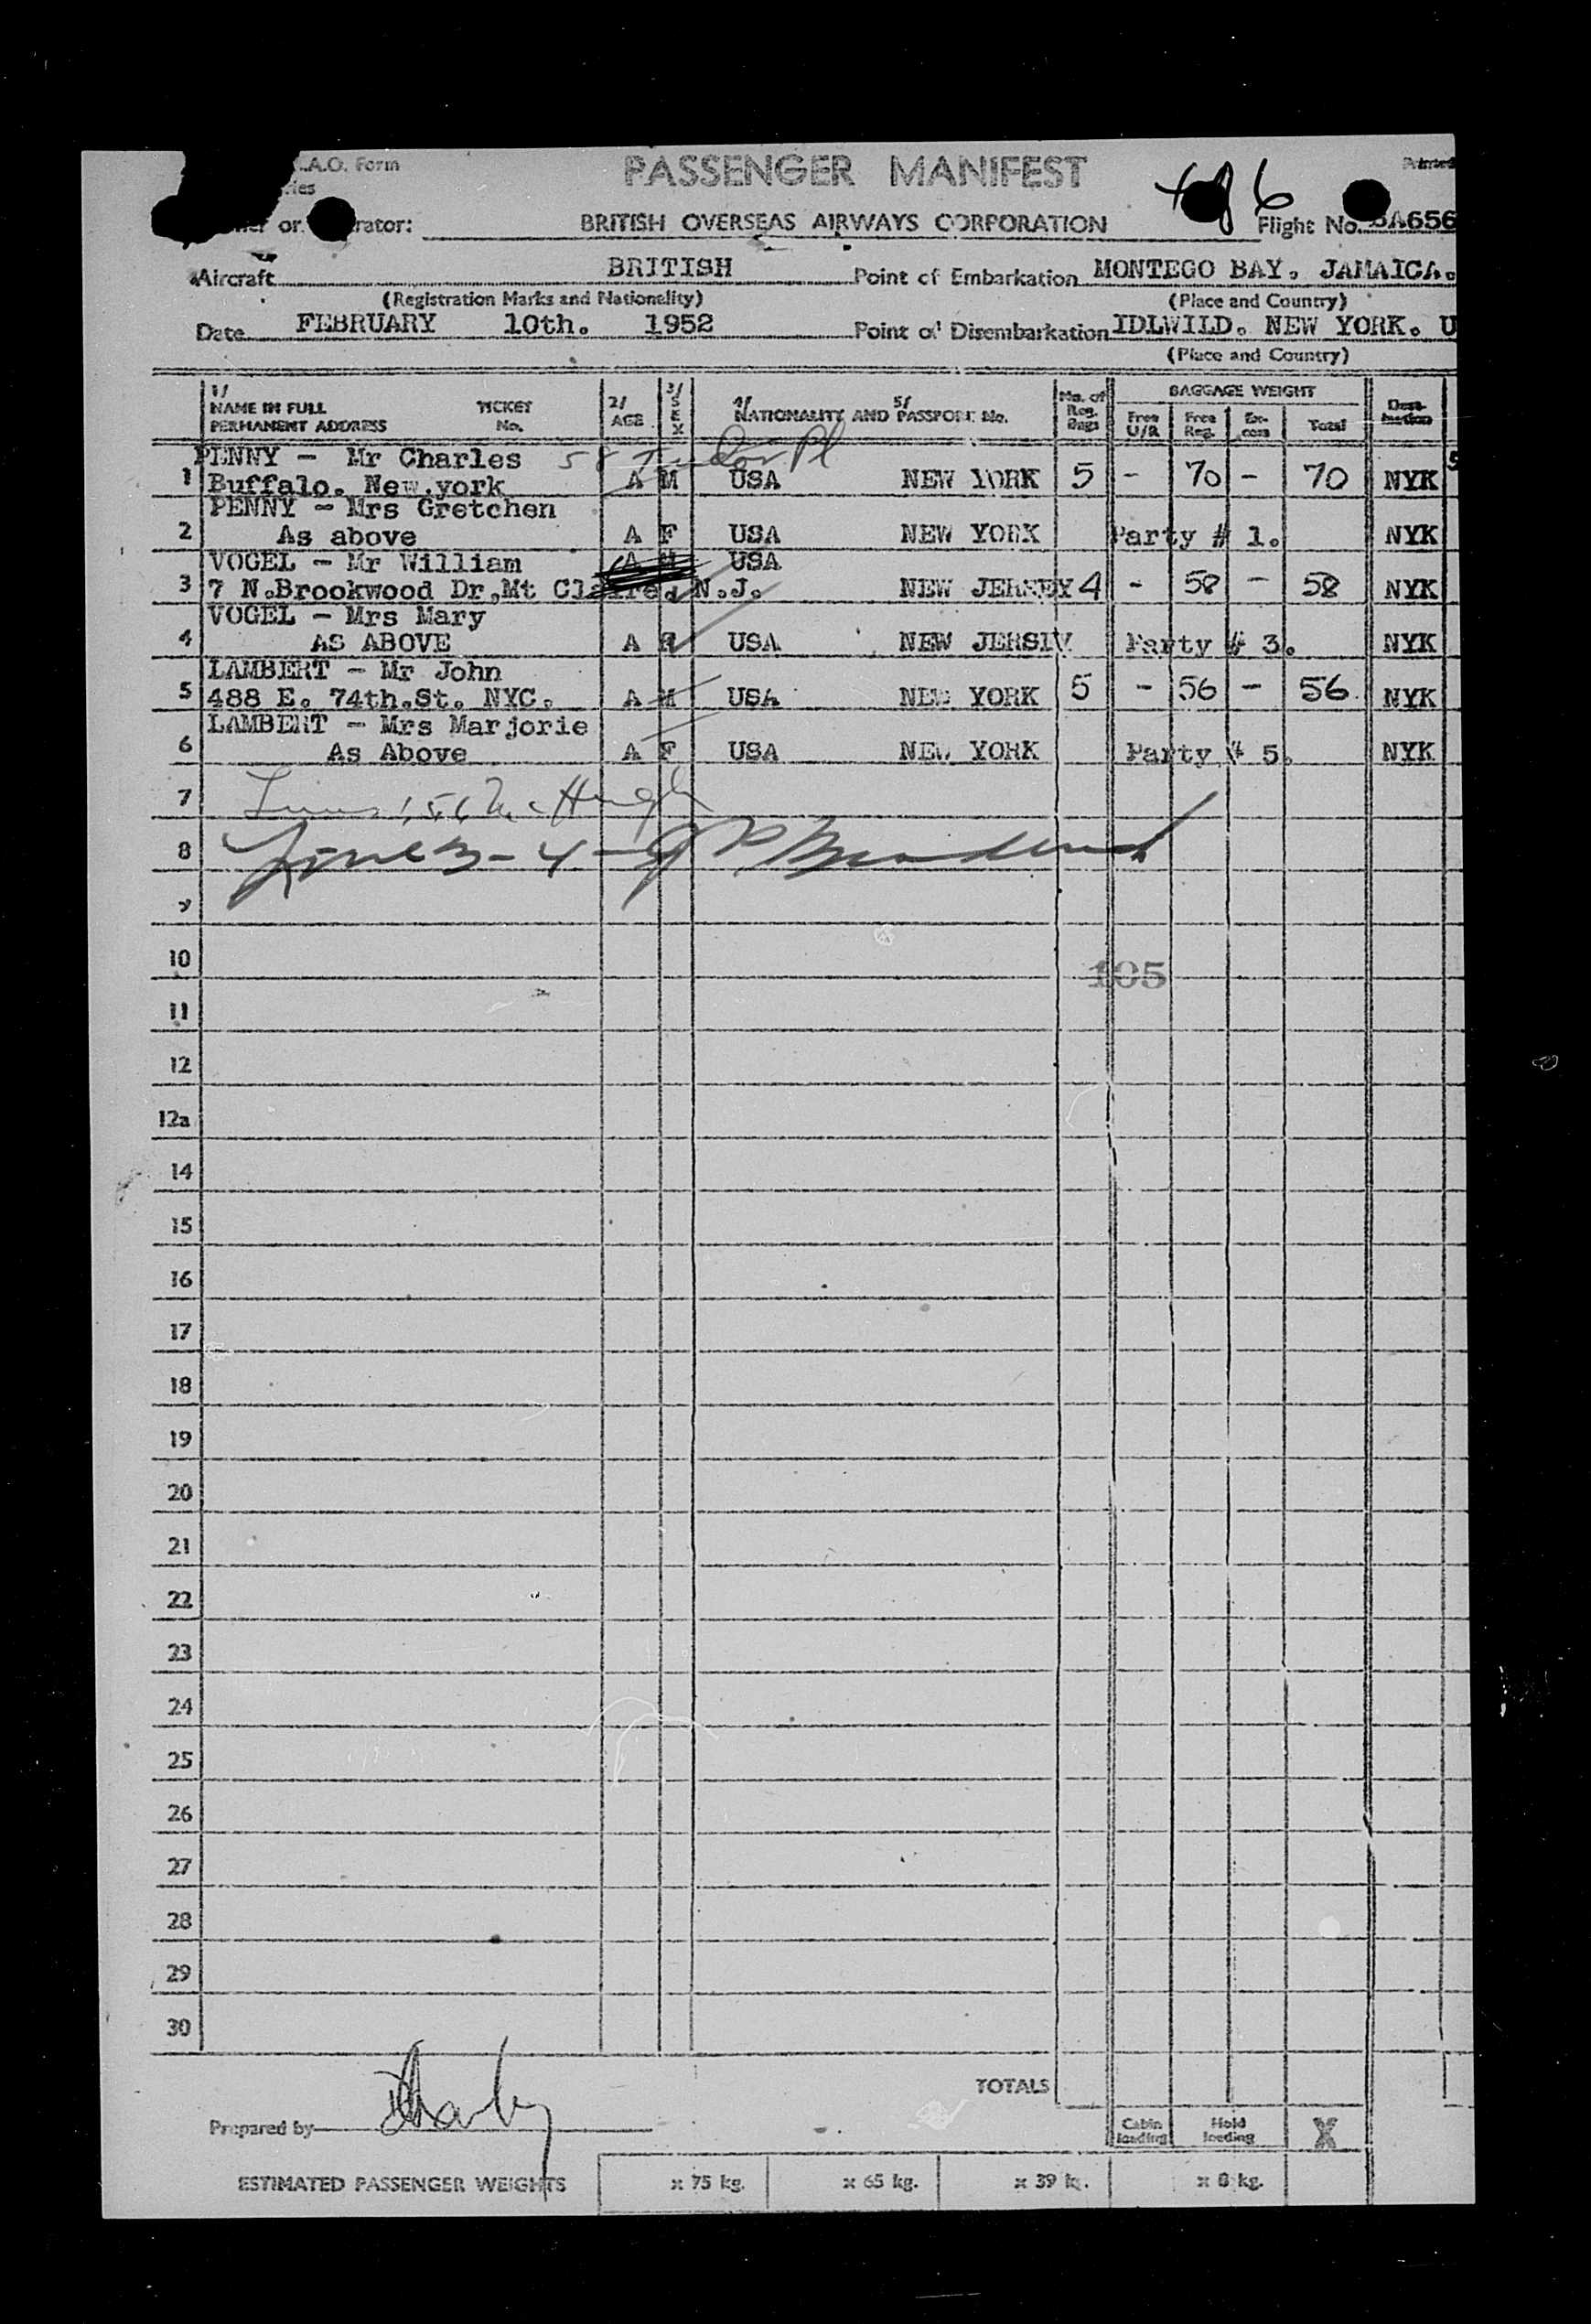 .A.O. Form PASSENGER MANIFEST Printed
or rator: BRITISH OVERSEAS AIRWAYS CORPORATION Flight No. BA656
Aircraft BRITISH Point of Embarkation MONTEGO BAY. JAMAICA.
(Registration Marks and Nationality) (Place and Country)
Date FEBRUARY 10th. 1952 Point of Disembarkation IDLWILD. NEW YORK. U
(Place and Country)
1/ NAME IN FULL PERMANENT ADDRESS TICKET No. 2/ AGE 3/ SEX 4/ NATIONALITY AND 5/ PASSPORT No. No. of Reg. Bags BAGGAGE WEIGHT Free U/R Free Reg. Ex-cess Total Dest-ination
PENNY - Mr Charles 58 Tudor Pl
1 Buffalo. New.york A M USA NEW YORK 5 - 70 - 70 NYK
PENNY - Mrs Gretchen
2 As above A F USA NEW YORK Party # 1. NYK
VOGEL - Mr William A M USA
3 7 N.Brookwood Dr,Mt N.J. NEW JERSEY 4 - 58 - 58 NYK
VOGEL - Mrs Mary
4 AS ABOVE A USA NEW JERSIY Party # 3. NYK
LAMBERT - Mr John
5 488 E. 74th.St. NYC. A M USA NEW YORK 5 - 56 - 56 NYK
LAMBERT - Mrs Marjorie
6 As Above A F USA NEW YORK Party # 5. NYK
7
8 Line 3-4
9
10
105
11
12
12a
14
15
16
17
18
19
20
21
22
23
24
25
26
27
28
29
30
TOTALS
Prepared by Cabin loading Hold loading X
ESTIMATED PASSENGER WEIGHTS x 75 kg. x 65 kg. x 39 k. x 8 kg.